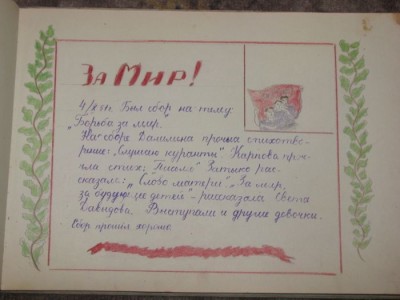 За Мир!
4/X 51г. Был сбор на тему:
"Борьба за мир".
На сборе Далилина прочла стихотво-
рение: "Слушаю куранты" Карпова про-
чла стих: "Письмо" Затыко рас-
сказала: "Слово матери". "За мир,
за будущее детей" – рассказала Света
Давидова. Выступали и другие девочки.
Сбор прошёл хорошо